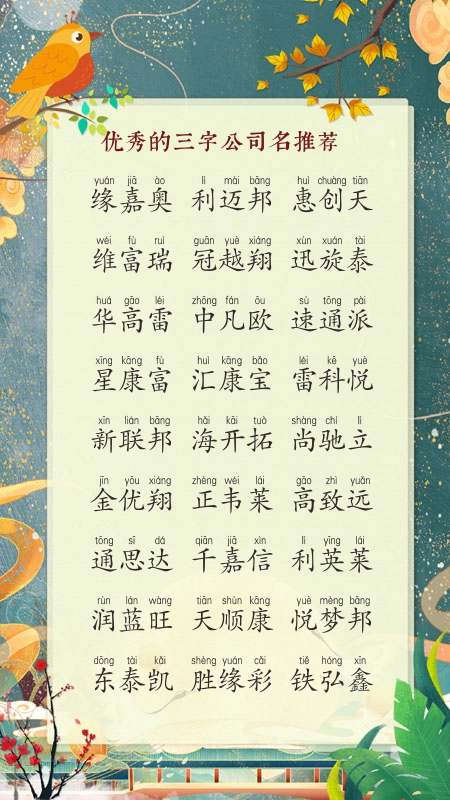 优秀的三字公司名推荐
yuán jiā ào lì mài bāng huì chuàng tiān
缘嘉奥 利迈邦 惠创天
wéi fù ruì guān yuè xiáng xùn xuán tài
维富瑞 冠越翔 迅旋泰
huá gāo léi zhōng fán ōu sù tōng pài
华高雷 中凡欧 速通派
xīng kāng fù huì kāng bǎo léi kē yuè
星康富 汇康宝 雷科悦
xīn lián bāng hǎi kāi tuò shàng chí lì
新联邦 海开拓 尚驰立
jīn yōu xiáng zhèng wéi lái gāo zhì yuǎn
金优翔 正韦莱 高致远
tōng sī dá qiān jiā xìn lì yīng lái
通思达 千嘉信 利英莱
rùn lán wàng tiān shùn kāng yuè mèng bāng
润蓝旺 天顺康 悦梦邦
dōng tài kǎi shèng yuán cǎi tiě hóng xīn
东泰凯 胜缘彩 铁弘鑫